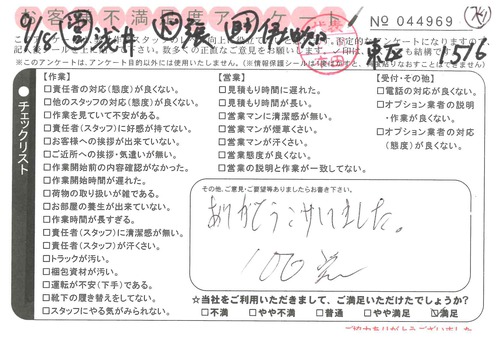 お客様不満足度アンケート
No 044969
9/18
東区 1576
※このアンケートは、アンケート目的以外には使用いたしません。
チェックリスト
【作業】
□責任者の対応(態度)が良くない。
□他のスタッフの対応(態度)が良くない。
□作業を見ていて不安がある。
□責任者(スタッフ)に好感が持てない。
□お客様への挨拶が出来ていない。
□ご近所への挨拶・気遣いが無い。
□作業開始前の内容確認がなかった。
□作業開始時間が遅れた。
□荷物の取り扱いが雑である。
□お部屋の養生が出来ていない。
□作業時間が長すぎる。
□責任者(スタッフ)に清潔感が無い。
□責任者(スタッフ)が汗くさい。
□トラックが汚い。
□梱包資材が汚い。
□運転が不安(下手)である。
□靴下の履き替えをしてない。
□スタッフにやる気がみられない。
【営業】
□見積もり時間に遅れた。
□見積もり時間が長い。
□営業マンに清潔感が無い。
□営業マンが煙草くさい。
□営業マンが汗くさい。
□営業態度が良くない。
□営業の説明と作業が一致してない。
【受付・その他】
□電話の対応が良くない。
□オプション業者の説明・作業が良くない。
□オプション業者の対応(態度)が良くない。
その他、ご意見・ご要望等ありましたらお書き下さい。
ありがとうございました。
100点
☆当社をご利用いただきまして、ご満足いただけたでしょうか?
□不満 □やや不満 □普通 □やや満足 ☑満足
ご協力ありがとうございました